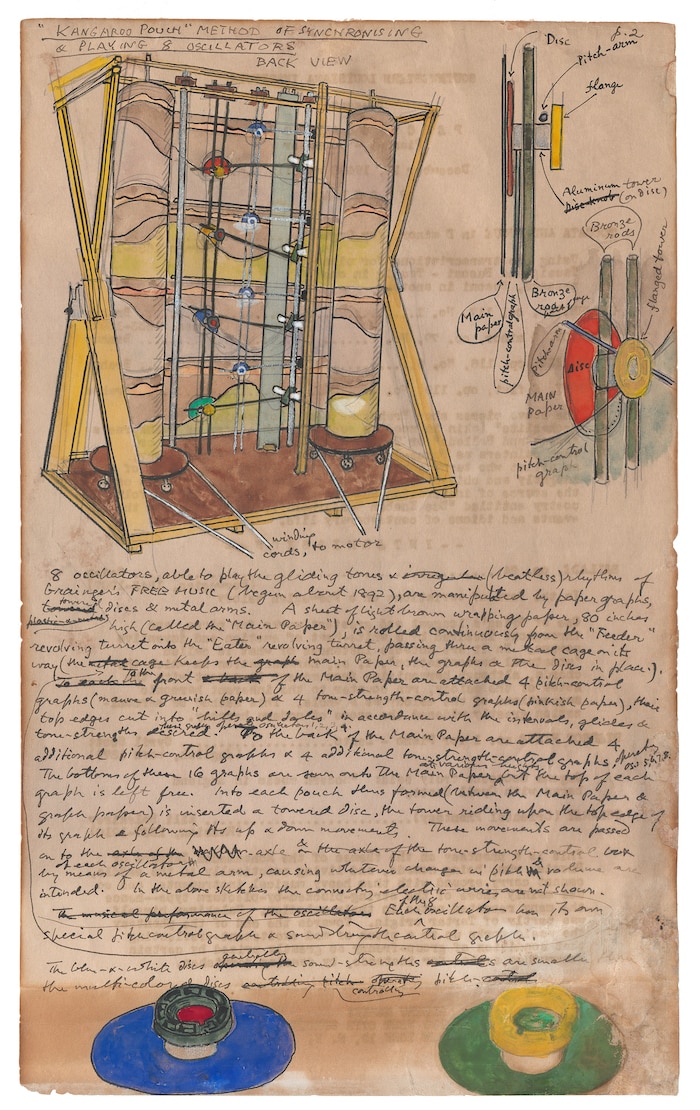 "KANGAROO POUCH" METHOD OF SYNCHRONISING
& PLAYING 8 OSCILLATORS
BACK VIEW
p.2
Disc
Pitch-arm
flange
Aluminum tower
Disc-knob (on disc)
Main paper
pitch-control graph
Bronze rods
Bronze rods
flanged tower
Pitch-arm
Disc
MAIN PAPER
pitch-control graph
winding cords, to motor
8 oscillators, able to play the gliding tones & irregular (beatless) rhythms of
Grainger's FREE MUSIC (begun about 1892), are manipulated by paper graphs,
towered discs & metal arms. A sheet of light brown wrapping paper, 80 inches
high (called the "Main Paper"), is rolled continuously from the "Feeder"
revolving turret onto the "Eater" revolving turret, passing thru a metal cage on its
way (the cage keeps the graph main Paper, the graphs & the discs in place.).
To the front of the Main Paper are attached 4 pitch-control
graphs (mauve & greenish paper) & 4 tone-strength-control graphs (pinkish paper), their
top edges cut into "hills and dales" in accordance with the intervals, glides &
tone-strengths desired. To the back of the Main Paper are attached 4
additional pitch-control graphs & 4 additional tone-strength-control graphs, operating osc. 5, 6, 7, 8.
The bottoms of these 16 graphs are sewn onto the Main Paper at various heights but the top of each
graph is left free. Into each pouch thus formed (between the Main Paper &
graph paper) is inserted a towered disc, the tower riding upon the top edge of
its graph & following its up & down movements. These movements are passed
on to the axle & on the axle of the tone-strength-control box
of each oscillator by means of a metal arm, causing whatever changes in pitch & volume are
intended. In the above sketches the connecting electric wires are not shown.
the musical performance of the oscillators Each of the 8 oscillators has its own
special pitch control graph & sound strength control graph.
The blue-&-white discs controlling the sound-strengths are smaller than
the multi-colored discs controlling pitch